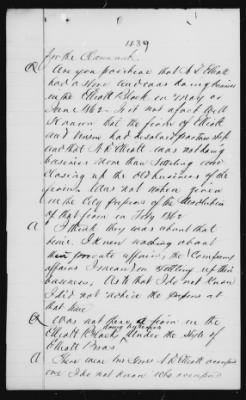 1439
for the Claimant.
Q Are you positive that A R Elliott
had a store and was doing business
in the Elliott Block in May or
June 1862 - Is it not a fact well
known that the firm of Elliott
and had dissolved partnership
and that A R Elliott was not doing
business more than settling and
closing up the old business of the
firm. Was not notice given
in the City papers of the dissolution
of that firm in July 1862
A I think they was about that
time. I knew nothing about
their private affairs, the Company
affairs I mean, in settling up their
business, As to that I do not know
I did not notice the papers at
that time
Q Was not there a firm in the
Elliott Block doing business under the style of
Elliott Bros
A There were two stores A R Elliott occupied
one I do not know who occupied